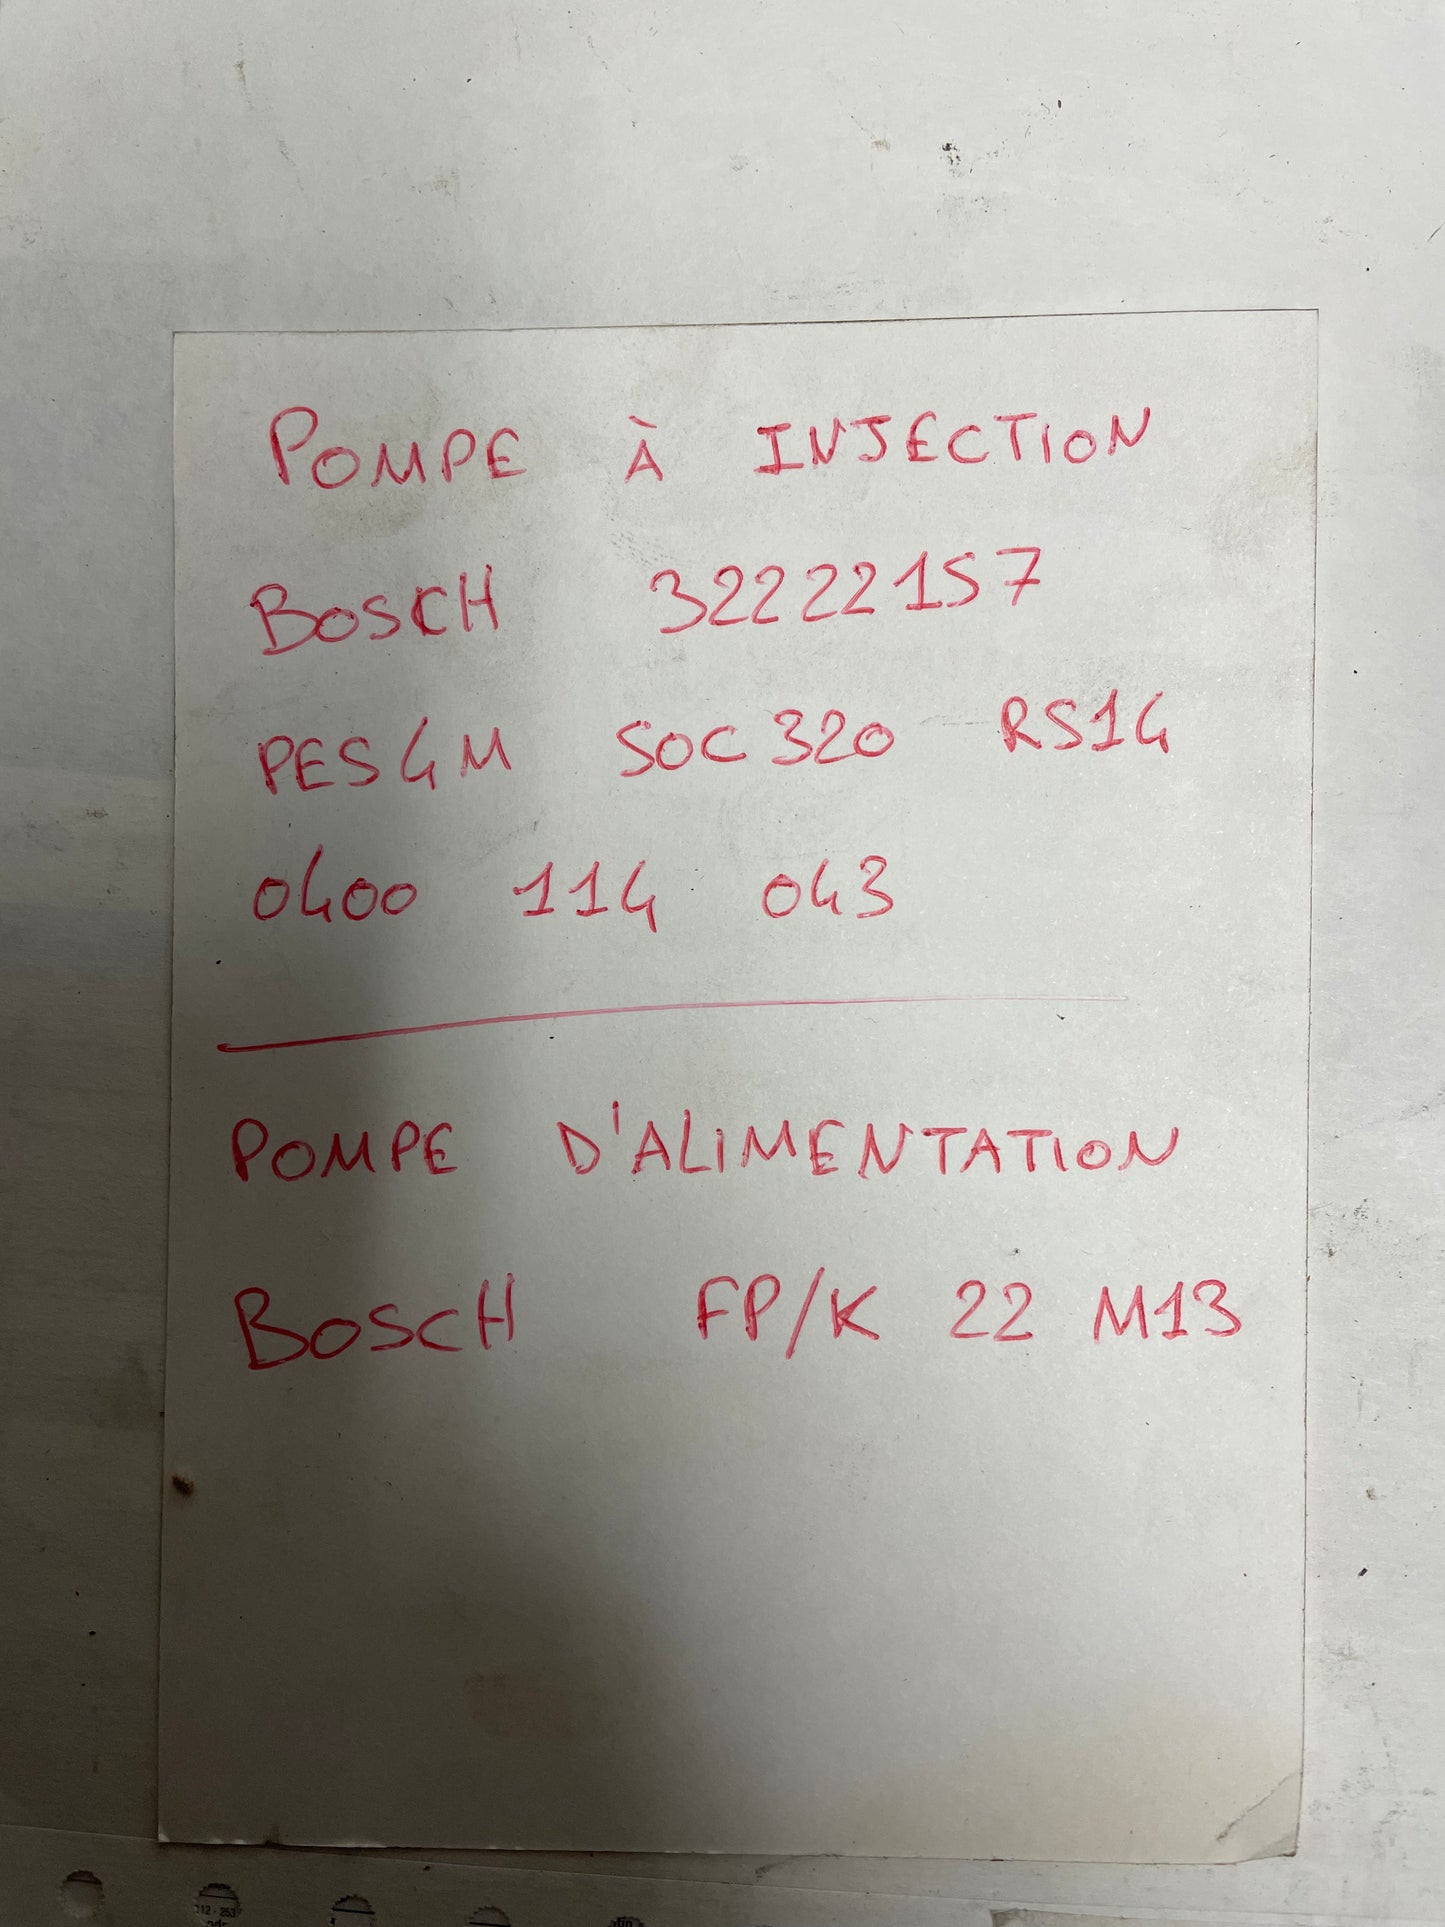 POMPE À INJECTION
BOSCH 32222157
PES4M 50C320 RS14
0400 114 043
POMPE D'ALIMENTATION
BOSCH FP/K 22 M13
12-253